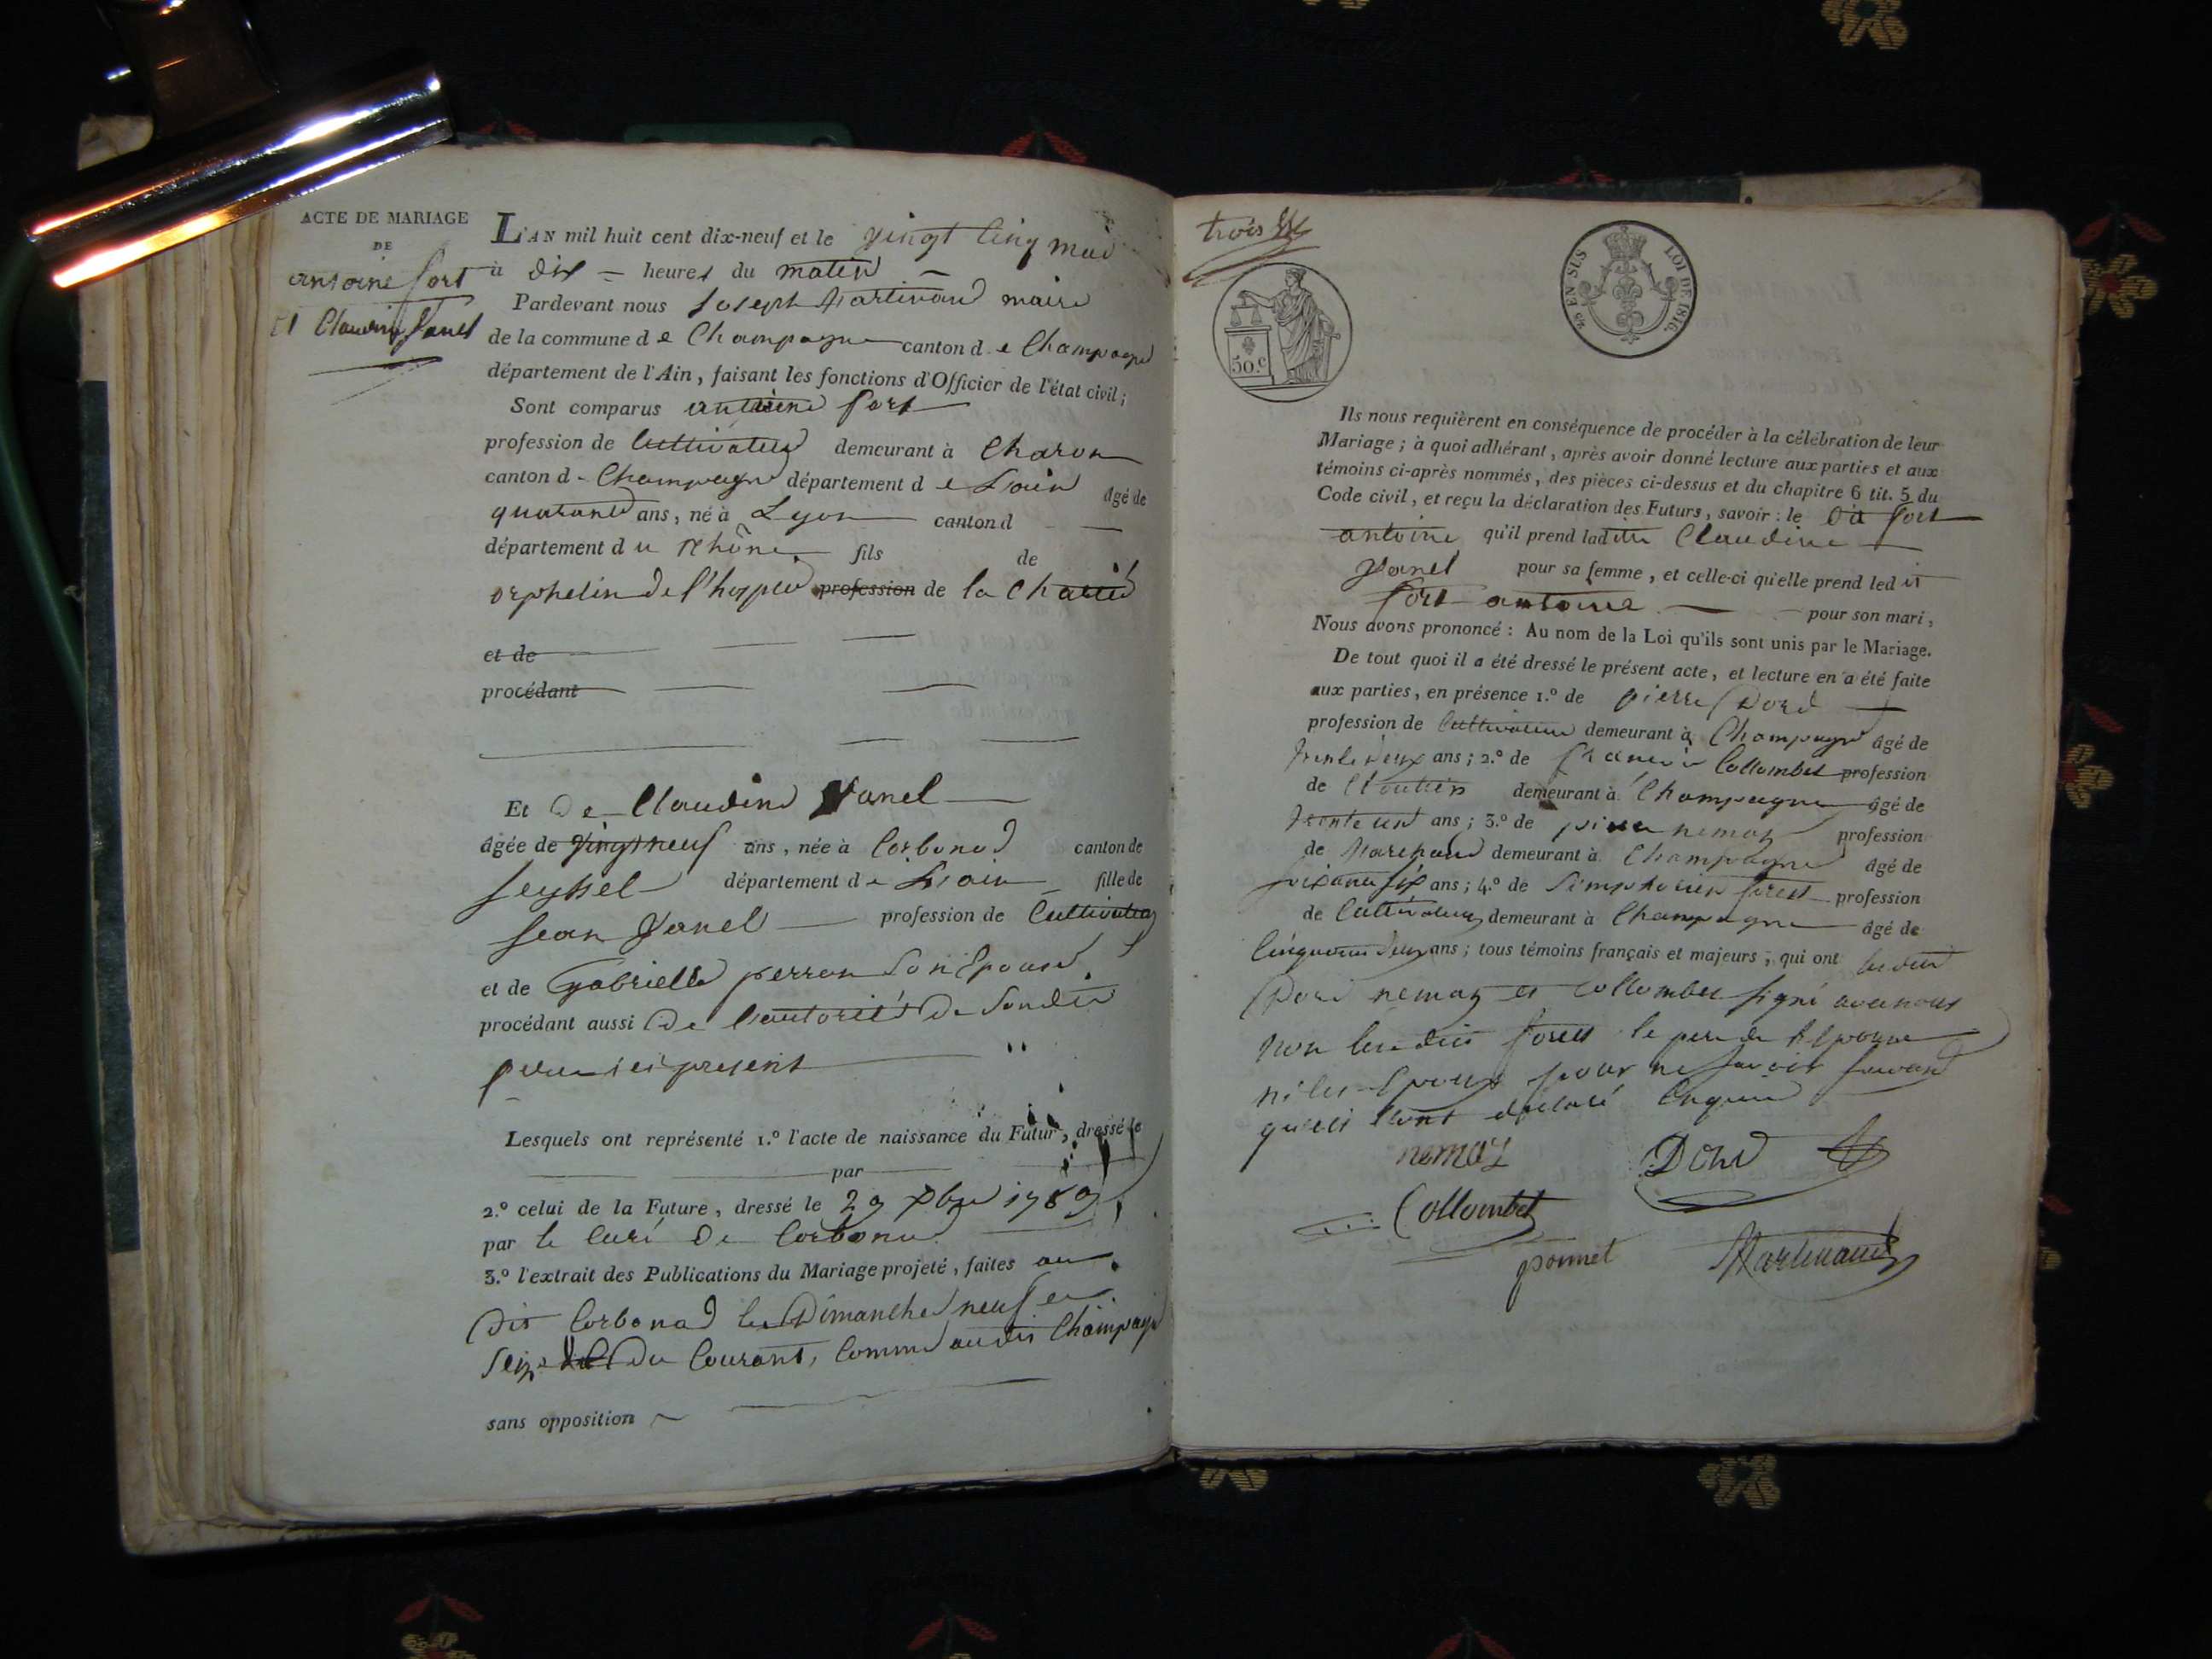 ACTE DE MARIAGE
DE
antoine fort
et Claudine Vanel
L'AN mil huit cent dix-neuf et le vingt cinq mai
à dix heures du matin
Pardevant nous Joseph Martinand maire
de la commune de Champagne canton de Champagne
département de l'Ain, faisant les fonctions d'Officier de l'état civil;
Sont comparus antoine fort
profession de Cultivateur demeurant à Charon
canton d Champagne département de L'ain âgé de
quarante ans, né à Lyon canton d
département du rhône fils de
orphelin de l'hopital profession de la Charité
et de
procédant
Et De Claudine Vanel
âgée de vingt neuf ans, née à Corbonod canton de
seyssel département de L'ain fille de
jean Vanel profession de Cultivateur
et de gabrielle perron son Epouse
procédant aussi De l'autorité De sondit
pere ici present
Lesquels ont représenté 1.º l'acte de naissance du Futur, dressé le
par
2.º celui de la Future, dressé le 29 Xbre 1789
par le Curé De Corbonod
3.º l'extrait des Publications du Mariage projeté, faites au
Dit Corbonod les Dimanches neuf et
seize du Courant, Comme audit Champagne
sans opposition
trois
EN SUS
LOI DE 1816.
50.c
Ils nous requièrent en conséquence de procéder à la célébration de leur
Mariage; à quoi adhérant, après avoir donné lecture aux parties et aux
témoins ci-après nommés, des pièces ci-dessus et du chapitre 6 tit. 5 du
Code civil, et reçu la déclaration des Futurs, savoir: le Dit fort
antoine qu'il prend ladite Claudine
Vanel pour sa femme, et celle-ci qu'elle prend ledit
fort antoine pour son mari,
Nous avons prononcé: Au nom de la Loi qu'ils sont unis par le Mariage.
De tout quoi il a été dressé le présent acte, et lecture en a été faite
aux parties, en présence 1.º de pierre Dord
profession de Cultivateur demeurant à Champagne âgé de
trente deux ans; 2.º de françois Collombet profession
de Cloutier demeurant à Champagne âgé de
trente un ans; 3.º de pierre nemoz profession
de Marchand demeurant à Champagne âgé de
soixante six ans; 4.º de Simphorien forest profession
de Cultivateur demeurant à Champagne âgé de
Cinquante deux ans; tous témoins français et majeurs, qui ont lesdits
Dord nemoz et Collombet signé avec nous
non ledit forest le pere de l'Epouse
ni les Epoux pour ne savoir
qu'ils ont déclaré Enquis
nemoz Dord
Collombet
ponnet Martinand